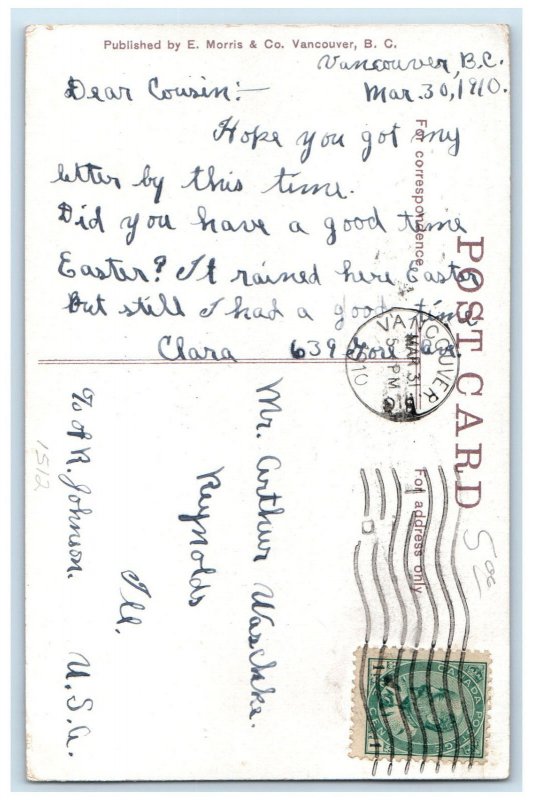 Published by E. Morris & Co. Vancouver, B. C.
Vancouver, B.C.
Mar. 30, 1910.
Dear Cousin:—
Hope you got my
letter by this time.
Did you have a good time
Easter? It rained here Easter
but still I had a good time
Clara 639 Gore Ave.
POST CARD
For correspondence
For address only
VANCOUVER
MAR 31
5 PM
1910
Mr. Arthur Waschke.
Reynolds
Ill.
U.S.A.
% A R. Johnson.
1512
500
CANADA POSTAGE
1 CENT 1